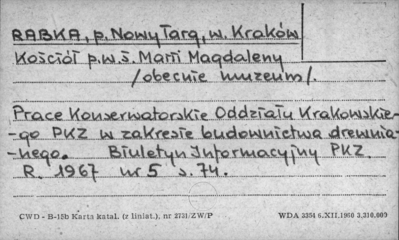 RABKA, p. Nowy Targ, w. Kraków
Kościół p.w.ś. Marii Magdaleny
/obecnie muzeum/.
Prace Konserwatorskie Oddziału Krakowskie-
-go PKZ w zakresie budownictwa drewnia-
-nego. Biuletyn Informacyjny PKZ.
R. 1967 nr 5 s. 74.
CWD - B-15b Karta katal. (z liniat.), nr 2731/ZW/P WDA 3354 6.XII.1960 3.310.000